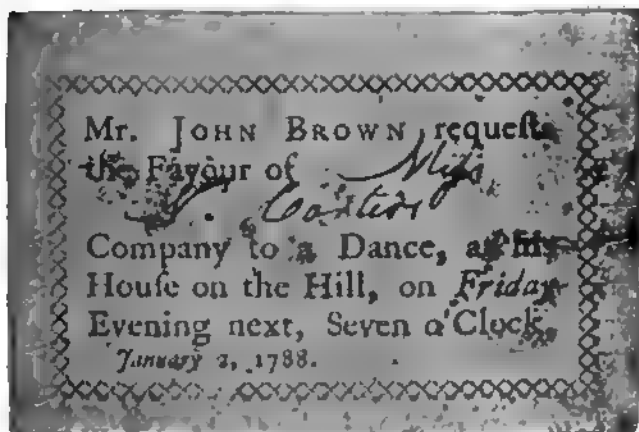 Mr. JOHN BROWN requeſts
the Favour of Miſs
Company to a Dance, at his
Houſe on the Hill, on Friday
Evening next, Seven o'Clock.
January 2, 1788.